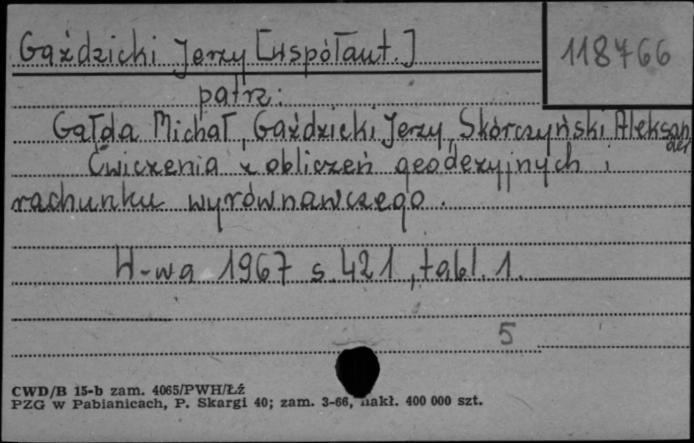 Gaździcki Jerzy [współaut.]
118766
patrz:
Gałda Michał, Gaździcki Jerzy, Skórczyński Aleksander
Ćwiczenia z obliczeń geodezyjnych i
rachunku wyrównawczego.
W-wa 1967 s. 421, tabl. 1.
5
CWD/B 15-b zam. 4065/PWH/Łź
PZG w Pabianicach, P. Skargi 40; zam. 3-66, nakł. 400 000 szt.